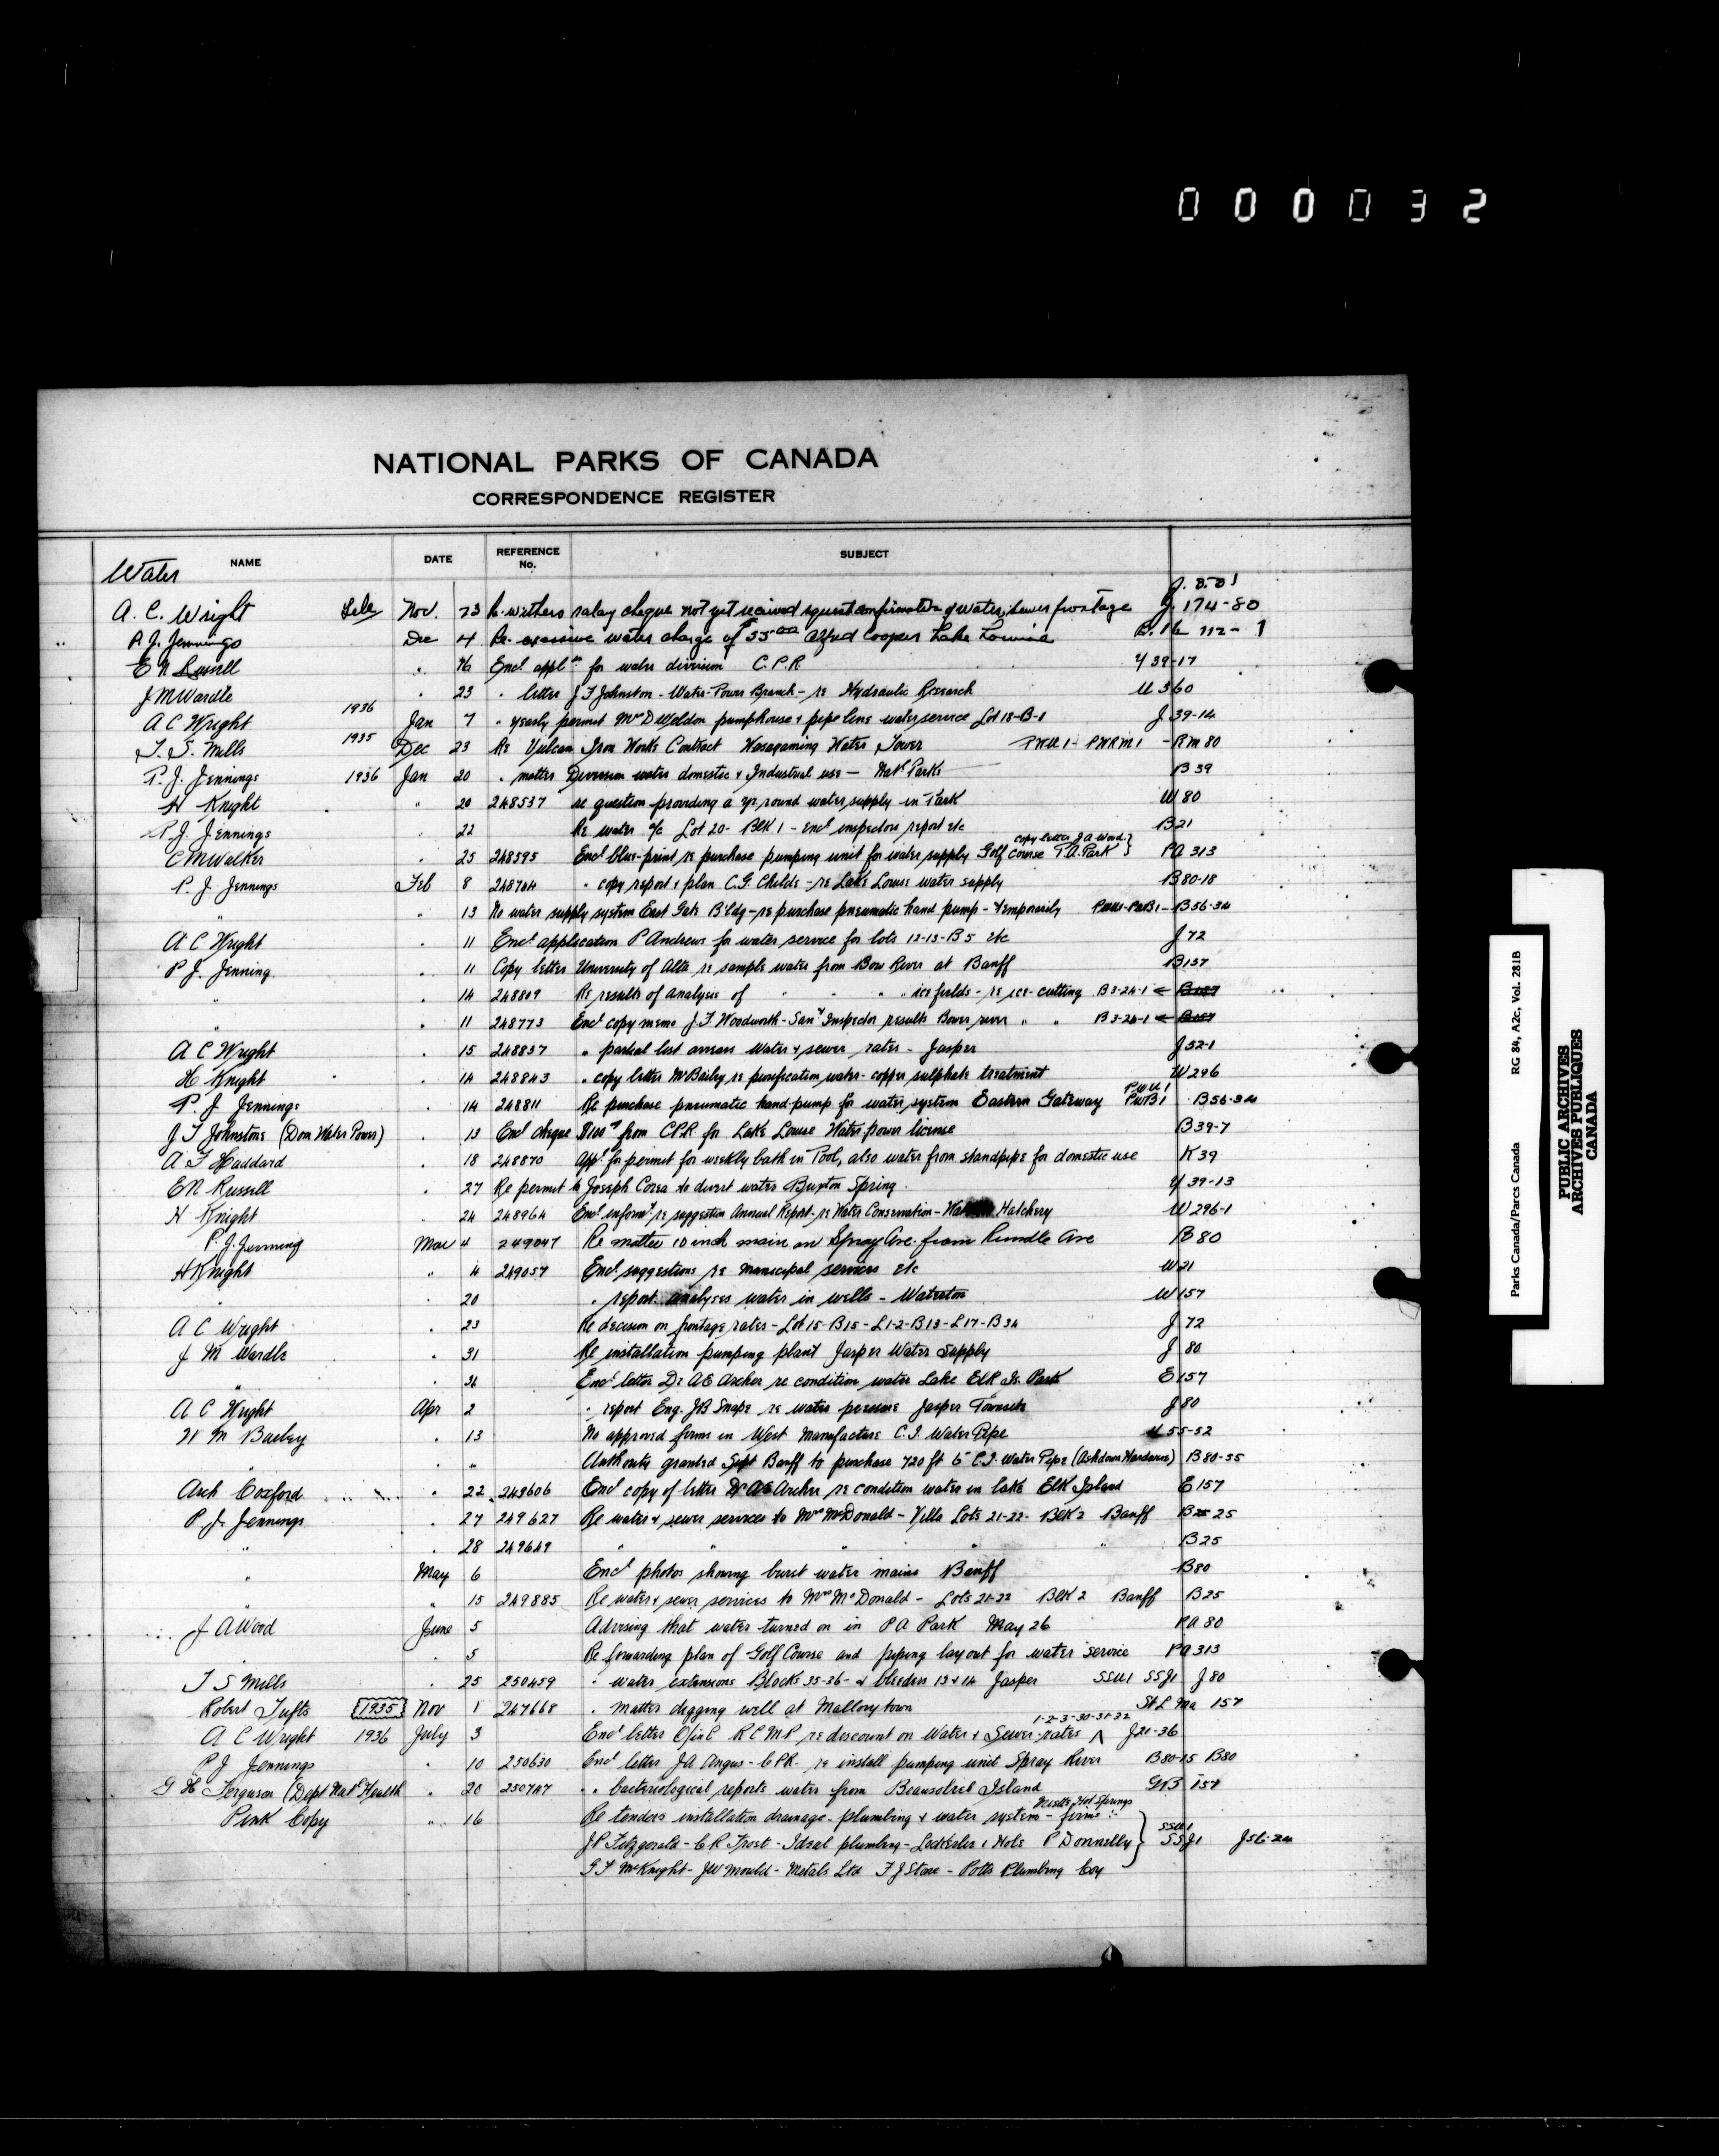 000032
NATIONAL PARKS OF CANADA
CORRESPONDENCE REGISTER
NAME DATE REFERENCE No. SUBJECT
Water
A. C. Wright Nov. 23 cheque not yet received confirmation of water, sewer frontage J. 174-80
P J. Jennings Dec 4 Re excessive water charge of Alfred Cooper Lake Louise
E N Russell " 16 Encl appln for water division C.P.R. Y 39-17
J M Wardle " 23 " letter J T Johnston - Water-Power Branch - re Hydraulic Research U 360
A C Wright 1936 Jan 7 " yearly permit Mrs D Weldon pumphouse & pipe line water service Lot 18-B-1 J 39-14
T. S. Mills 1935 Dec 23 Re Vulcan Iron Works Contract Wasagaming Water Tower PWU1 - PWRM1 - RM 80
P. J. Jennings 1936 Jan 20 " matter Diversion water domestic & Industrial use - Natl Parks B 39
H Knight " 20 248537 re question providing a yr round water supply in Park W 80
P. J. Jennings " 22 Re water a/c Lot 20 - Blk 1 - encl inspectors report etc B21
copy letter J A Wood
C M Walker " 25 248595 Encl blue-print re purchase pumping unit for water supply Golf course P.A. Park } PA 313
P. J. Jennings Feb 8 248704 " copy report & plan C.G. Childe - re Lake Louise water supply B80-18
" " 13 No water supply system East Gate Bldg - re purchase pneumatic hand pump - temporarily PWU1-PWB1 - B56-34
A C Wright " 11 Encl application P Andrews for water service for lots 12-13-B5 etc J 72
P J. Jenning " 11 Copy letter University of Alta re sample water from Bow River at Banff B157
" " 14 248809 Re results of analysis of " " " " ice fields - re ice-cutting B3-24-1 ← B157
" " 11 248773 Encl copy memo J. F. Woodworth - Sany Inspector results Bower river " " B3-24-1 ← B157
A C Wright " 15 248837 " partial list arrears Water & sewer rates - Jasper J 52-1
H Knight " 14 248843 " copy letter M Bailey re purification water - copper sulphate treatment W 296
PWU1
P. J Jennings " 14 248811 Re purchase pneumatic hand-pump for water system Eastern Gateway PWB1 B56-34
J T Johnstone (Dom Water Power) " 13 Encl cheque from CPR for Lake Louise Water power license B39-7
A F Haddard " 18 248870 Appl for permit for weekly bath in Pool, also water from standpipe for domestic use K 39
E N Russell " 27 Re permit to Joseph Corea to divert water Buxton Spring Y 39-13
H Knight 24 248964 Encl informt re suggestion Annual Report - re Water Conservation - Hatchery W 296-1
P. J. Jenning Mar 4 249047 Re matter 10 inch main on Spray Ave. from Rundle Ave B 80
H Knight " 4 249057 Encl suggestions re municipal services etc W21
" 20 " report analyses water in wells - Waterton W157
A C Wright " 23 Re decision on frontage rates - Lot 15-B15-L1-2-B13-L17-B34 J 72
J M Wardle " 31 Re installation pumping plant Jasper Water Supply J 80
" " 31 Encl letter Dr A E Archer re condition water Lake Elk Is. Park E157
A C Wright Apr 2 " report Eng. J B Snape re water pressure Jasper Townsite J80
W M Bailey " 13 No approved firms in West manufacture C.I. Water Pipe U 55-52
" " " Authority granted Supt Banff to purchase 720 ft 6" C.I. Water Pipe (Ashdown Hardware) B80-55
Arch Coxford " 22 249606 Encl copy of letter Dr A E Archer re condition water in lake Elk Island E 157
P J. Jennings " 27 249627 Re water & sewer services to Mrs McDonald - Villa Lots 21-22 - Blk 2 Banff B25
" " 28 249649 " " " " " B25
" May 6 Encl photos showing burst water mains Banff B80
" " 15 249885 Re water & sewer services to Mrs McDonald - Lots 21-22 Blk 2 Banff B25
J A Wood June 5 Advising that water turned on in P A Park May 26 PA 80
" " 5 Re forwarding plan of Golf Course and piping layout for water service PA 313
T S Mills " 25 250459 " water extensions Blocks 35-36 - & bleeders 13 & 14 Jasper SSU1 SSJ1 J 80
Robert Tufts 1935 Nov 1 247668 " matter digging well at Mallorytown StL Ma 157
1-2-3-30-31-32
A C Wright 1936 July 3 Encl letter O/i/C R C M P re discount on Water & Sewer rates ^ J21-36
P J Jennings " 10 250630 Encl letter J A Angus - C P R. re install pumping unit Spray River B80-15 B80
G H Ferguson (Dept Natl Health " 20 250747 " " bacteriological reports water from Beausoleil Island GB 157
Miette Hot Springs
Pink Copy " 16 Re tenders installation drainage - plumbing & water system - firms :-
J P Fitzgerald - C R Frost - Ideal plumbing - Lockerbie & Hole P Donnelly } SSU1 SSJ1 J56-24
G F McKnight - J W Mould - Metals Ltd F J Stone - Potts Plumbing Coy
Parks Canada/Parcs Canada RG 84, A2c, Vol. 281B
PUBLIC ARCHIVES
ARCHIVES PUBLIQUES
CANADA